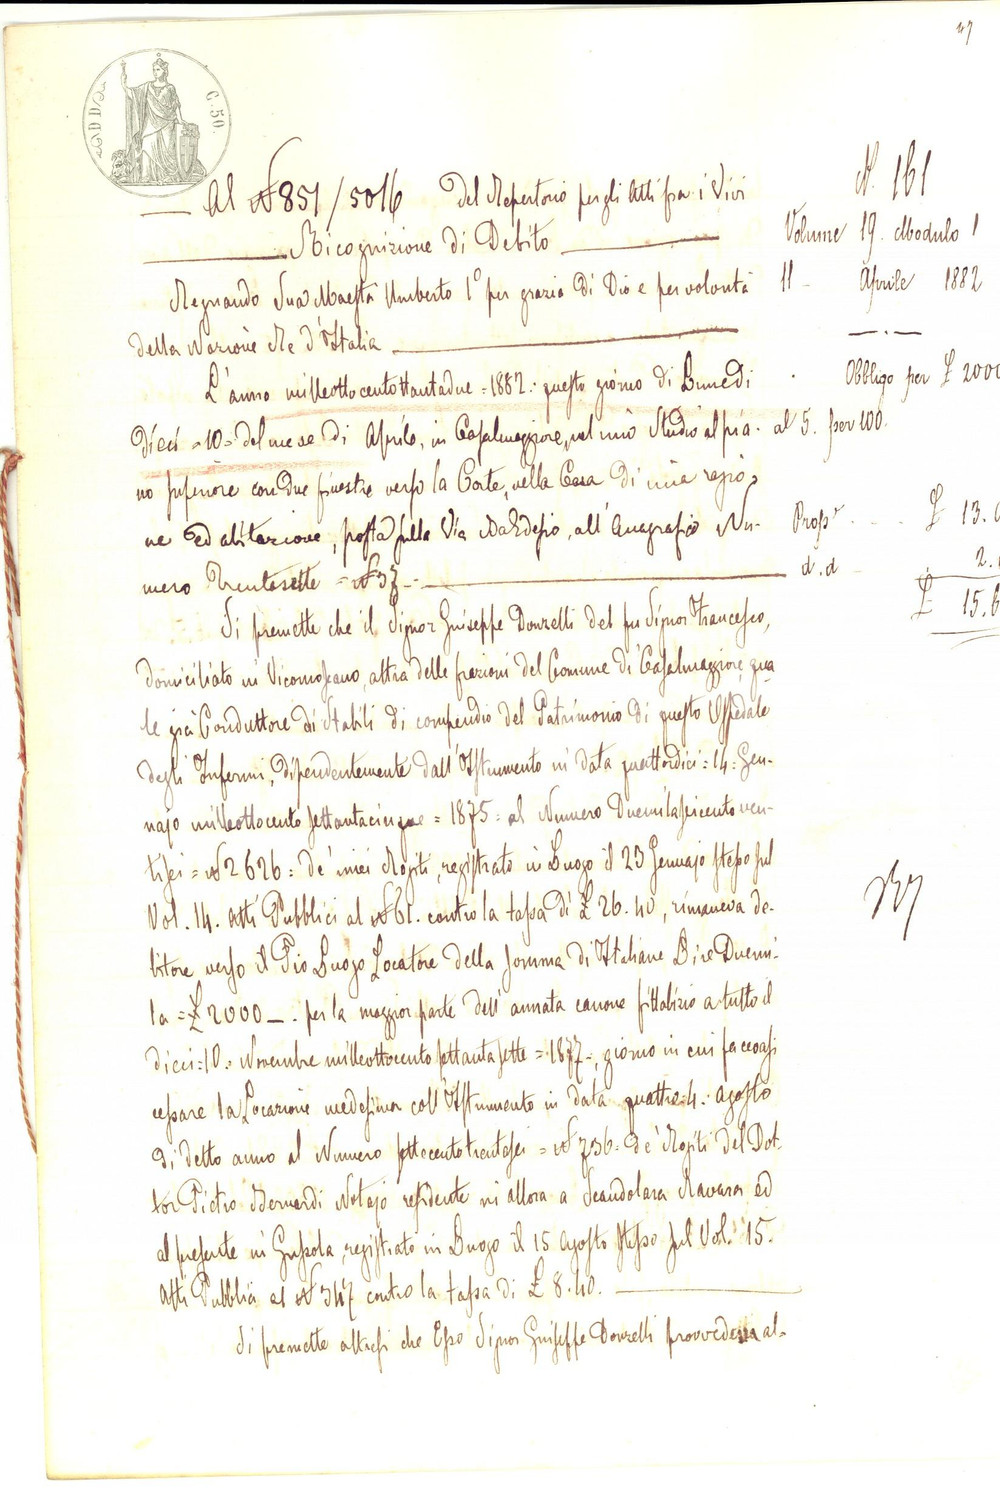 47
DDA
C. 50.
Al N 851/5016 Del Repertorio per gli Atti fra i Vivi
Ricognizione di Debito
Regnando Sua Maestà Umberto I° per grazia di Dio e per volontà
della Nazione Re d'Italia
L'anno milleottocentottantadue = 1882 = questo giorno di Lunedì
dieci = 10 = del mese di Aprile, in Casalmaggiore, nel mio Studio al pia-
no inferiore con due finestre verso la Corte, nella Casa di mia ragio-
ne ed abitazione, posta sulla Via Baldesio, all'Anagrafico Nu-
mero Trentasette = N 37 =
Si premette che il Signor Giuseppe Donzelli del fu Signor Francesco,
domiciliato in Vicomoscano, altra delle frazioni del Comune di Casalmaggiore, qua-
le già Conduttore di Stabili di compendio del Patrimonio di questo Ospedale
degli Infermi, dipendentemente dall'Istrumento in data quattordici = 14 = Gen-
najo milleottocento settantacinque = 1875 = al Numero Duemilaseicento ven-
tisei = N 2626 = de' miei Rogiti, registrato in Luogo il 23 Gennajo stesso sul
Vol. 14. Atti Pubblici al N 61. contro la tassa di £ 26.40, rimaneva de-
bitore verso il Pio Luogo Locatore della somma di Italiane Lire Duemi-
la = £ 2000 — . per la maggior parte dell'annata canone fittabizio a tutto il
dieci = 10 = Novembre milleottocento settantasette = 1877 =, giorno in cui faceasi
cessare la Locazione medesima coll'Istrumento in data quattro = 4 = Agosto
di detto anno al Numero settecentotrentasei = N 736 = de' Rogiti del Dot-
tor Pietro Bernardi Notajo residente in allora a Scandolara Ravara ed
al presente in Gussola, registrato in Luogo il 15 Agosto stesso sul Vol. 15.
Atti Pubblici al N 347 contro la tassa di £ 8.40.
Si premette altresì che Esso Signor Giuseppe Donzelli provvedeva al-
N. 161
Volume 19. Modulo 1
11 - Aprile 1882
Obbligo per £ 2000
al 5. per 100.
Prop.e £ 13.
d.d 2.
£ 15.6